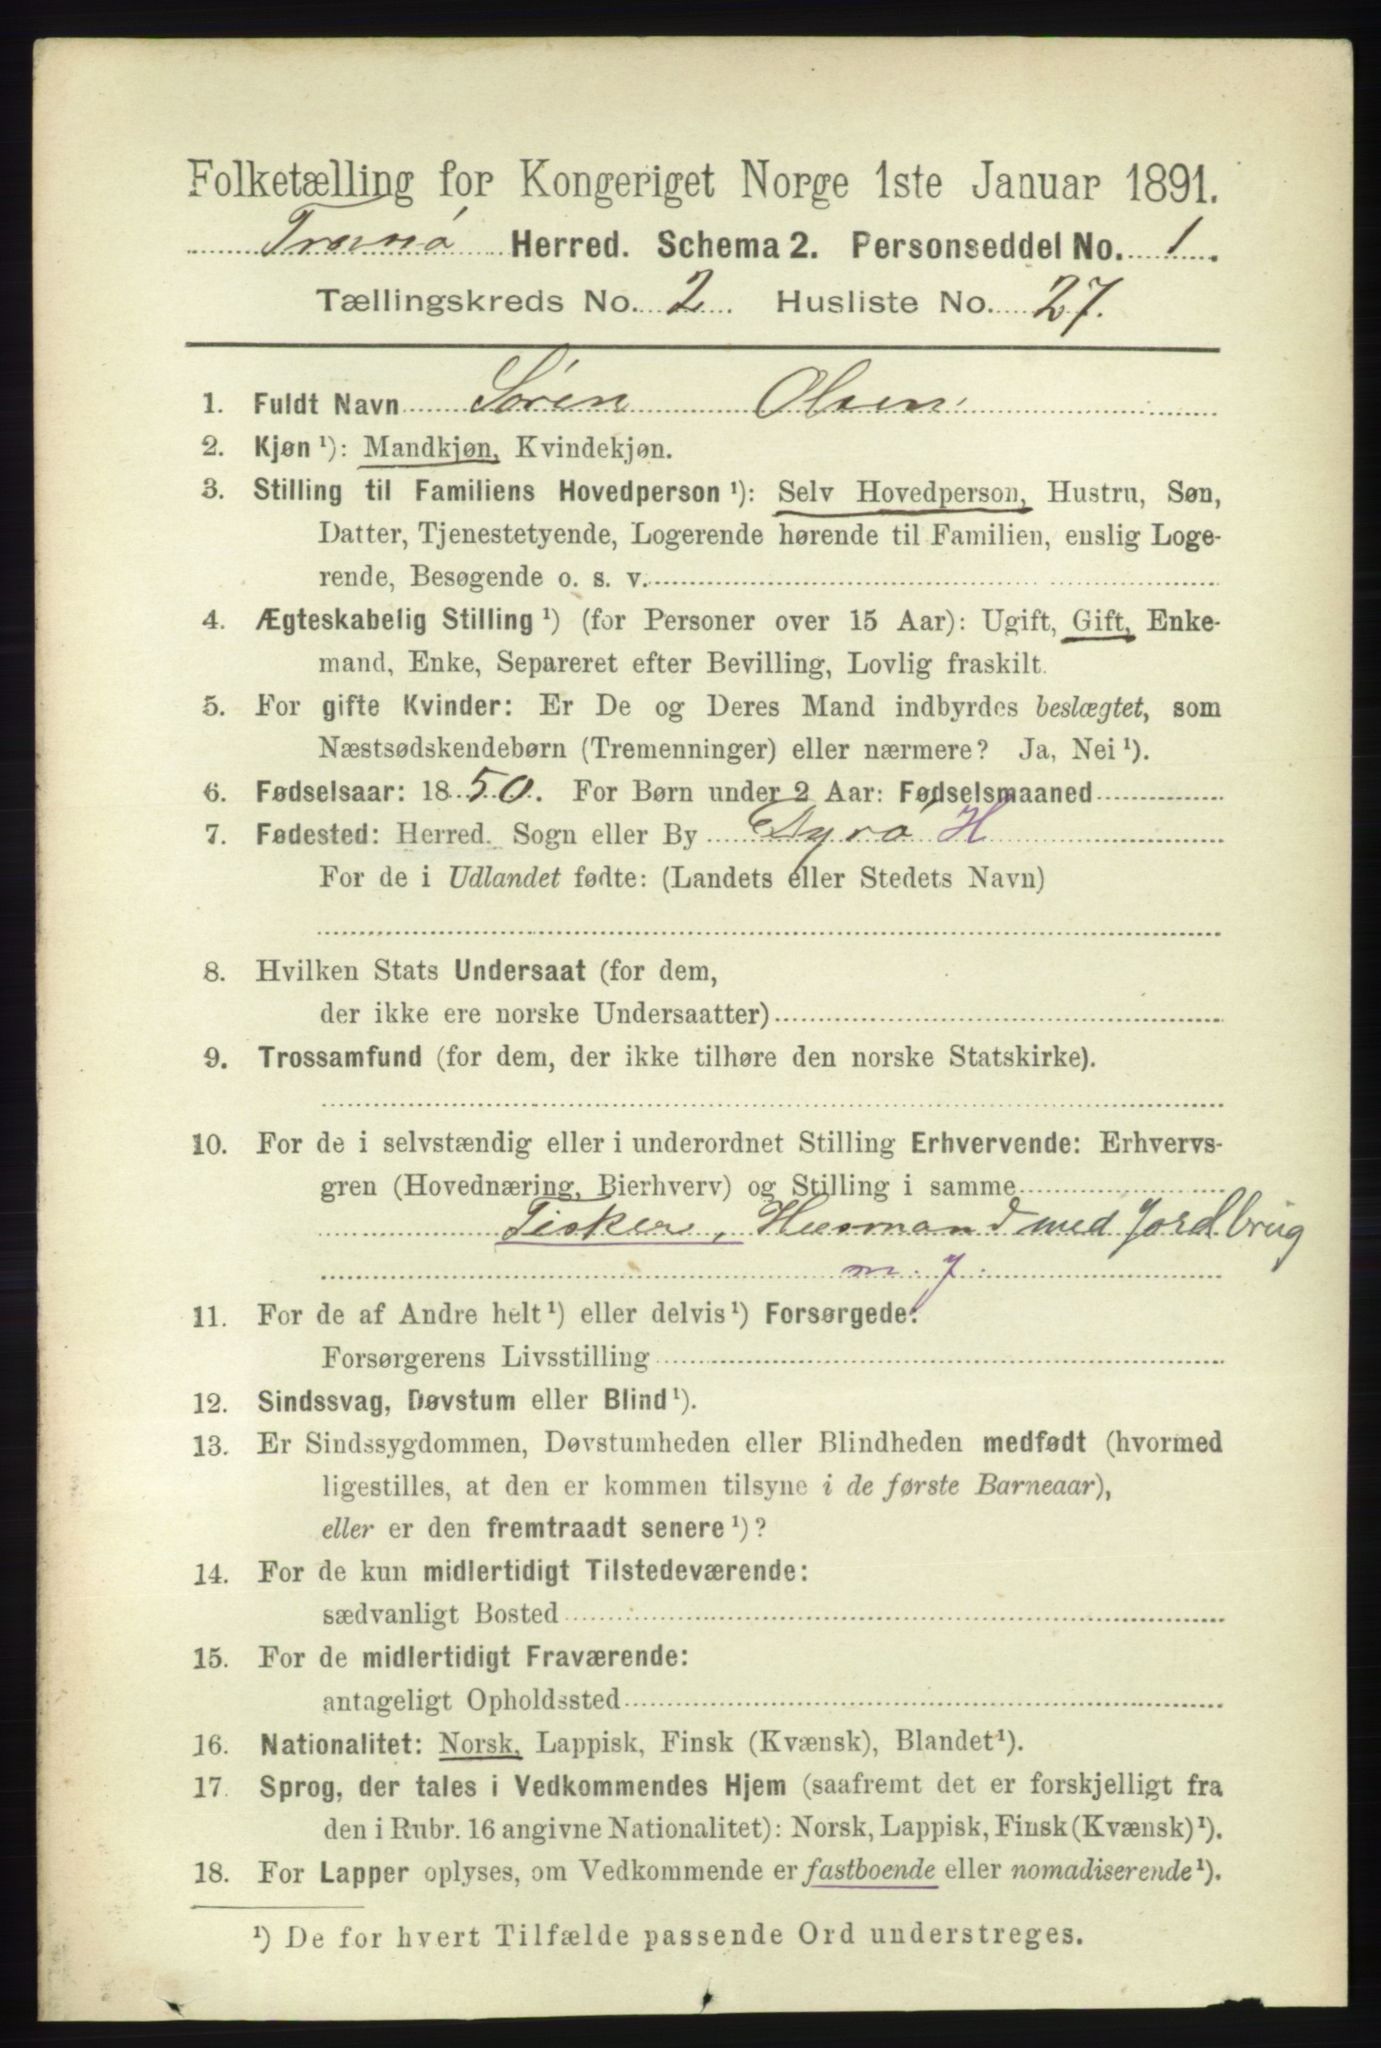 Folketælling for Kongeriget Norge 1ste Januar 1891.
Tranø Herred. Schema 2. Personseddel No. 1.
Tællingskreds No. 2. Husliste No. 27.
1. Fuldt Navn Sören Olsen
2. Kjøn ¹): Mandkjøn, Kvindekjøn.
3. Stilling til Familiens Hovedperson ¹): Selv Hovedperson, Hustru, Søn,
Datter, Tjenestetyende, Logerende hørende til Familien, enslig Loge-
rende, Besøgende o. s. v.
4. Ægteskabelig Stilling ¹) (for Personer over 15 Aar): Ugift, Gift, Enke-
mand, Enke, Separeret efter Bevilling, Lovlig fraskilt.
5. For gifte Kvinder: Er De og Deres Mand indbyrdes beslægtet, som
Næstsødskendebørn (Tremenninger) eller nærmere? Ja, Nei ¹).
6. Fødselsaar: 1850. For Børn under 2 Aar: Fødselsmaaned
7. Fødested: Herred. Sogn eller By Dyrö H
For de i Udlandet fødte: (Landets eller Stedets Navn)
8. Hvilken Stats Undersaat (for dem,
der ikke ere norske Undersaatter)
9. Trossamfund (for dem, der ikke tilhøre den norske Statskirke).
10. For de i selvstændig eller i underordnet Stilling Erhvervende: Erhvervs-
gren (Hovednæring, Bierhverv) og Stilling i samme
Fisker, Husmand med Jordbrug
m. j.
11. For de af Andre helt ¹) eller delvis ¹) Forsørgede:
Forsørgerens Livsstilling
12. Sindssvag, Døvstum eller Blind ¹).
13. Er Sindssygdommen, Døvstumheden eller Blindheden medfødt (hvormed
ligestilles, at den er kommen tilsyne i de første Barneaar),
eller er den fremtraadt senere ¹)?
14. For de kun midlertidigt Tilstedeværende:
sædvanligt Bosted
15. For de midlertidigt Fraværende:
antageligt Opholdssted
16. Nationalitet: Norsk, Lappisk, Finsk (Kvænsk), Blandet ¹).
17. Sprog, der tales i Vedkommendes Hjem (saafremt det er forskjelligt fra
den i Rubr. 16 angivne Nationalitet): Norsk, Lappisk, Finsk (Kvænsk) ¹).
18. For Lapper oplyses, om Vedkommende er fastboende eller nomadiserende ¹).
¹) De for hvert Tilfælde passende Ord understreges.